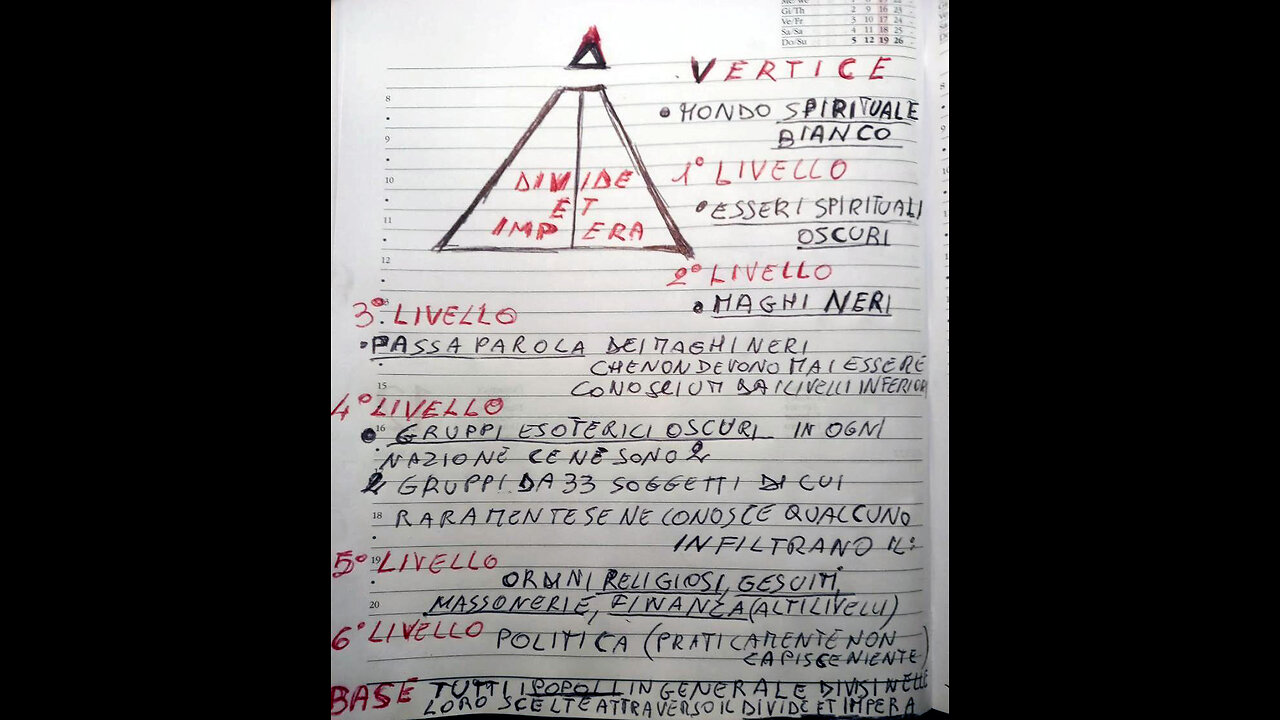 Gi/Th 2 9 16 23
Ve/Fr 3 10 17 24
Sa/Sa 4 11 18 25
Do/Su 5 12 19 26
VERTICE
• MONDO SPIRITUALE
BIANCO
1° LIVELLO
• ESSERI SPIRITUALI
OSCURI
2° LIVELLO
• MAGHI NERI
DIVIDE
ET
IMPERA
8
9
10
11
12
3° LIVELLO
• PASSA PAROLA DEI MAGHI NERI
CHE NON DEVONO MAI ESSERE
15
CONOSCIUTI DAI LIVELLI INFERIORI
4° LIVELLO
16
• GRUPPI ESOTERICI OSCURI IN OGNI
NAZIONE CE NE SONO 2
2 GRUPPI DA 33 SOGGETTI DI CUI
18
RARAMENTE SE NE CONOSCE QUALCUNO
INFILTRANO IL:
19
5° LIVELLO
ORDINI RELIGIOSI, GESUITI,
20
MASSONERIE, FINANZA (ALTI LIVELLI)
6° LIVELLO POLITICA (PRATICAMENTE NON
CAPISCE NIENTE)
BASE TUTTI I POPOLI IN GENERALE DIVISI NELLE
LORO SCELTE ATTRAVERSO IL DIVIDE ET IMPERA